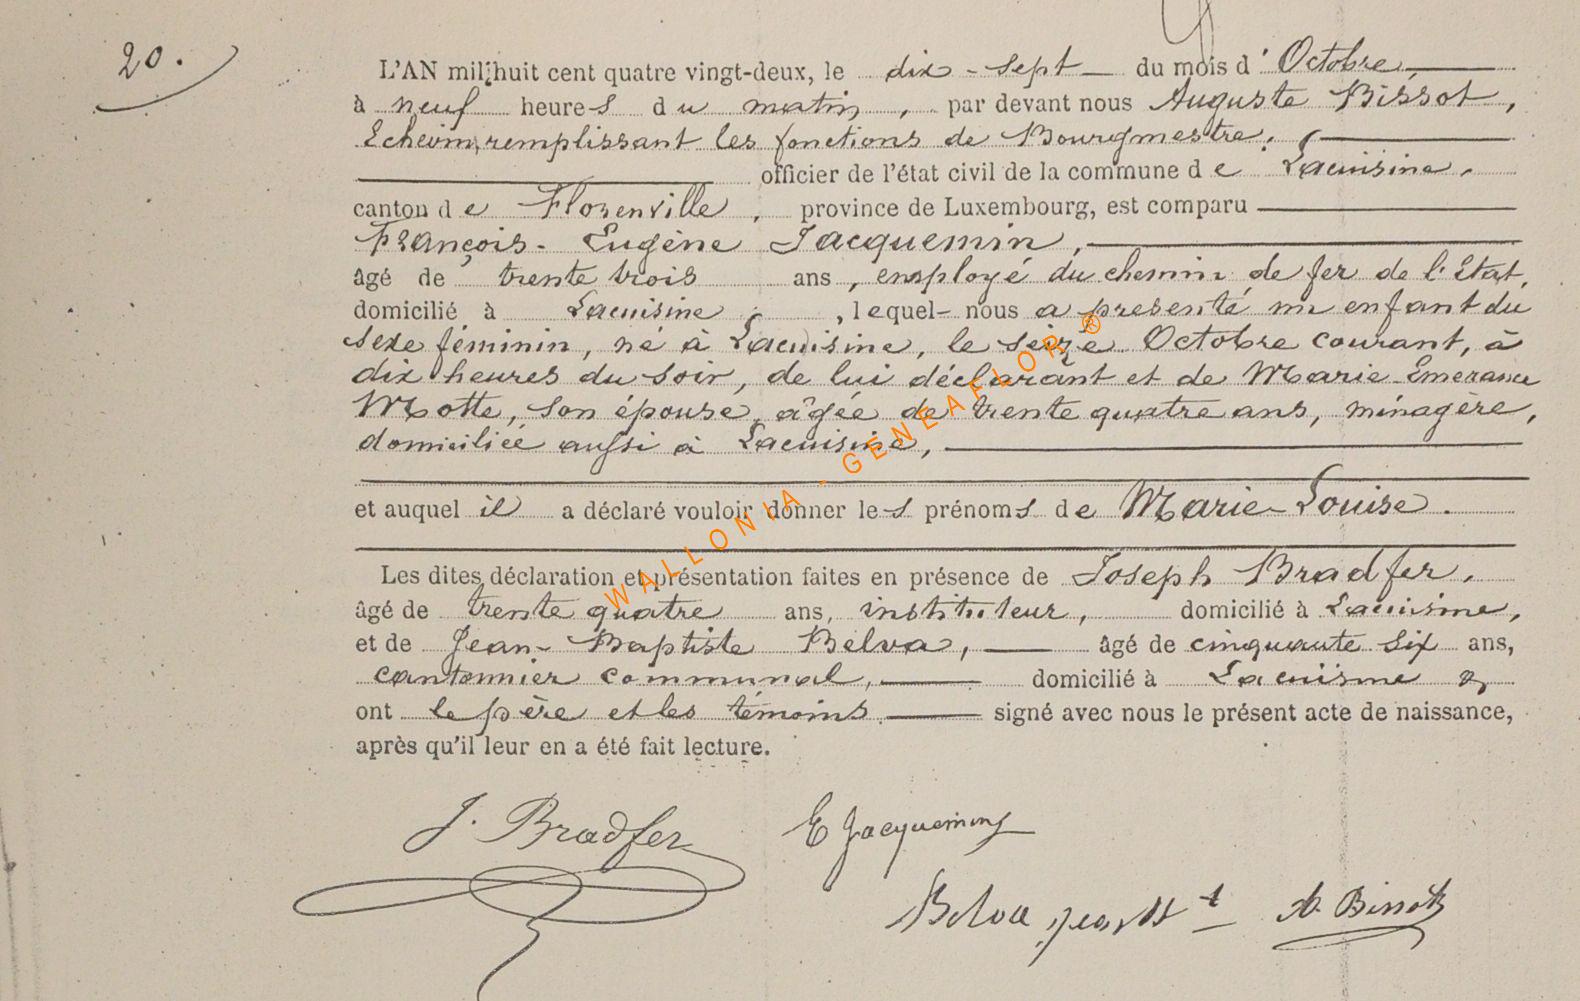 20.
L'AN mil huit cent quatre vingt-deux, le dix-sept du mois d'Octobre,
à neuf heures du matin, par devant nous Auguste Bissot,
Echevin, remplissant les fonctions de Bourgmestre,
officier de l'état civil de la commune de Lacuisine,
canton de Florenville, province de Luxembourg, est comparu
François-Eugène Jacquemin,
âgé de trente trois ans, employé du chemin de fer de l'Etat,
domicilié à Lacuisine, lequel nous a presenté un enfant du
sexe féminin, né à Lacuisine, le seize Octobre courant, à
dix heures du soir, de lui déclarant et de Marie-Emerance
Motte, son épouse, âgée de trente quatre ans, ménagère,
domiciliée aussi à Lacuisine,
et auquel il a déclaré vouloir donner les prénoms de Marie-Louise.
Les dites déclaration et présentation faites en présence de Joseph Bradfer,
âgé de trente quatre ans, instituteur, domicilié à Lacuisine,
et de Jean-Baptiste Belva, âgé de cinquante six ans,
cantonnier communal, domicilié à Lacuisine &
ont le père et les témoins signé avec nous le présent acte de naissance,
après qu'il leur en a été fait lecture.
J. Bradfer E Jacquemin
Belva Jean Bt A. Bissot
WALLONIA - GENEAFLOR ®